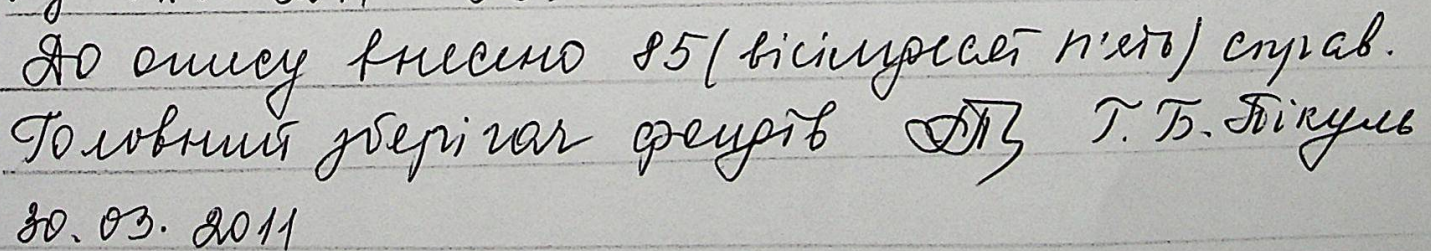 До опису внесено 85 (вісімдесят п'ять) справ.
Головний зберігач фондів Г. Б. Пікуль
30.03.2011